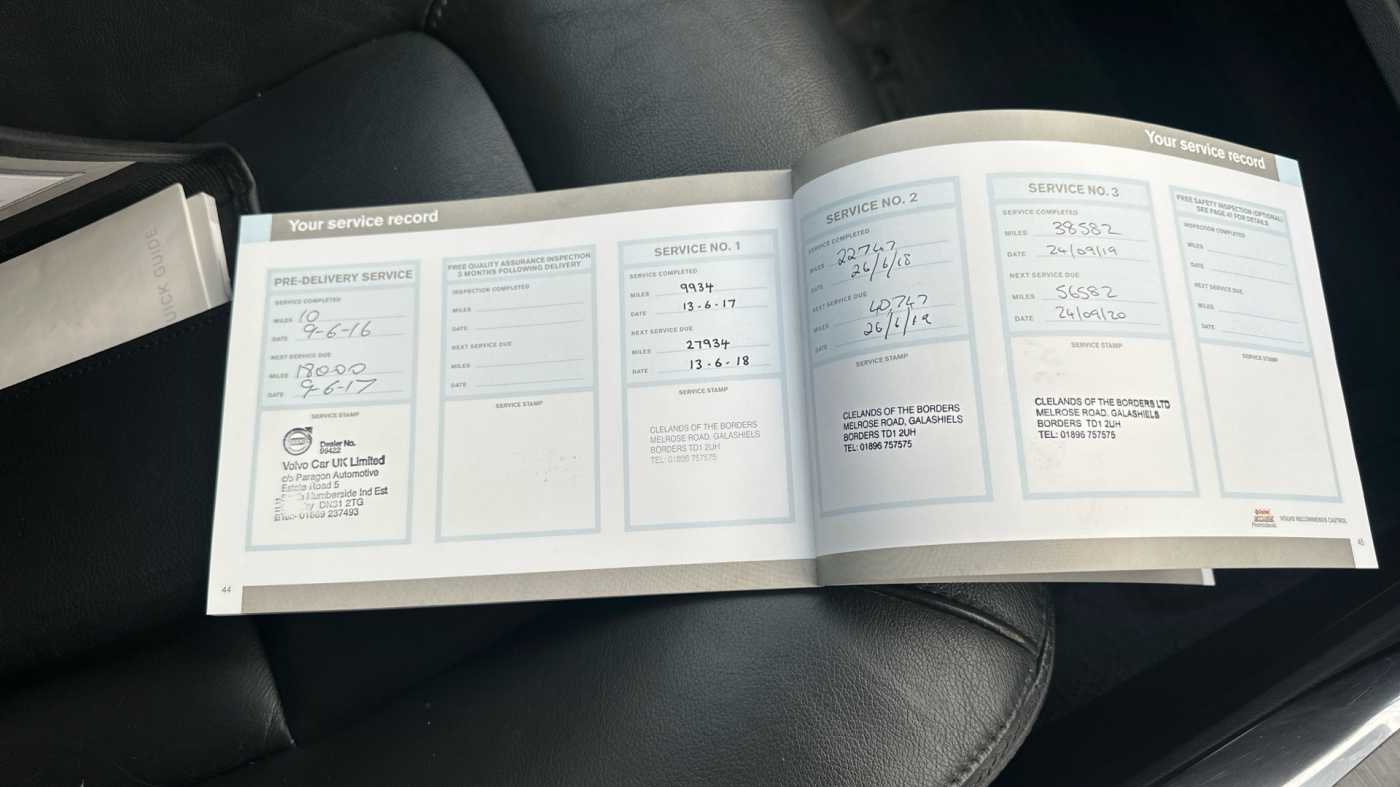 QUICK GUIDE
Your service record
PRE-DELIVERY SERVICE
SERVICE COMPLETED
MILES 10
DATE 9-6-16
NEXT SERVICE DUE
MILES 18000
DATE 9-6-17
SERVICE STAMP
Dealer No.
99422
Volvo Car UK Limited
c/o Paragon Automotive
Estate Road 5
Humberside Ind Est
DN31 2TG
237493
FREE QUALITY ASSURANCE INSPECTION
3 MONTHS FOLLOWING DELIVERY
INSPECTION COMPLETED
MILES
DATE
NEXT SERVICE DUE
MILES
DATE
SERVICE STAMP
SERVICE NO. 1
SERVICE COMPLETED
MILES 9934
DATE 13-6-17
NEXT SERVICE DUE
MILES 27934
DATE 13-6-18
SERVICE STAMP
CLELANDS OF THE BORDERS
MELROSE ROAD, GALASHIELS
BORDERS TD1 2UH
TEL: 01896 757575
44
Your service record
SERVICE NO. 2
SERVICE COMPLETED
MILES 22747
DATE 26/6/18
NEXT SERVICE DUE
MILES 40,747
DATE 26/6/19
SERVICE STAMP
CLELANDS OF THE BORDERS
MELROSE ROAD, GALASHIELS
BORDERS TD1 2UH
TEL: 01896 757575
SERVICE NO. 3
SERVICE COMPLETED
MILES 38582
DATE 24/09/19
NEXT SERVICE DUE
MILES 56582
DATE 24/09/20
SERVICE STAMP
CLELANDS OF THE BORDERS LTD
MELROSE ROAD, GALASHIELS
BORDERS TD1 2UH
TEL: 01896 757575
FREE SAFETY INSPECTION (OPTIONAL)
SEE PAGE 41 FOR DETAILS
INSPECTION COMPLETED
MILES
DATE
NEXT SERVICE DUE
MILES
DATE
SERVICE STAMP
Castrol
VOLVO RECOMMENDS CASTROL
45